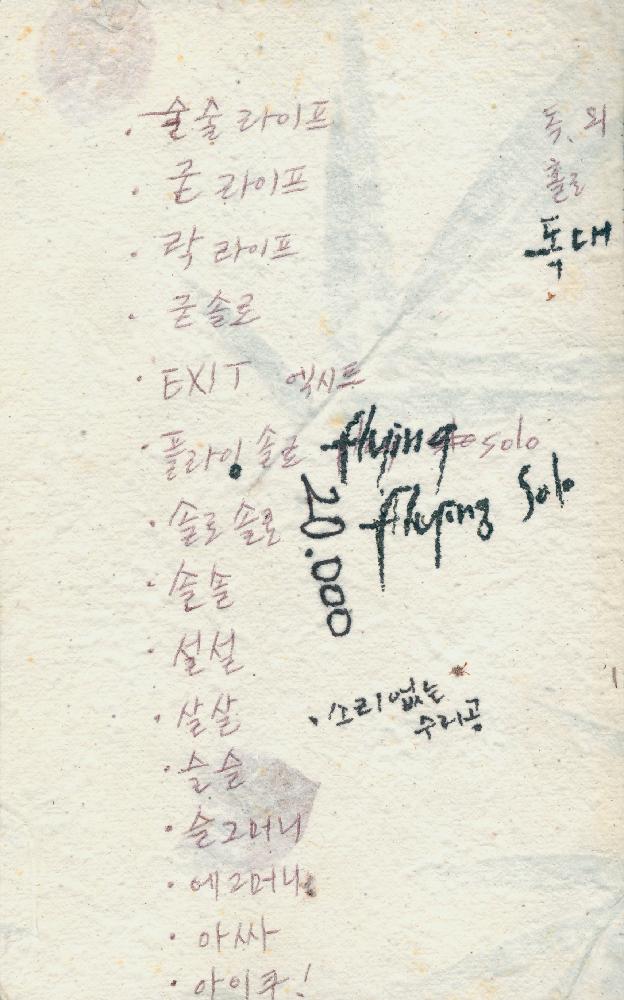 · 술술라이프
· 굳 라이프
· 락 라이프
· 굳솔로
· EXIT 엑시트
· 플라잉솔로 flying solo
flying Solo
· 솔로솔로
20.000
· 솔솔
· 설설
· 살살
· 소리없는
수리공
· 슬슬
· 슬그머니
· 에그머니
· 아싸
· 아이쿠!
독, 외
홀로
독대